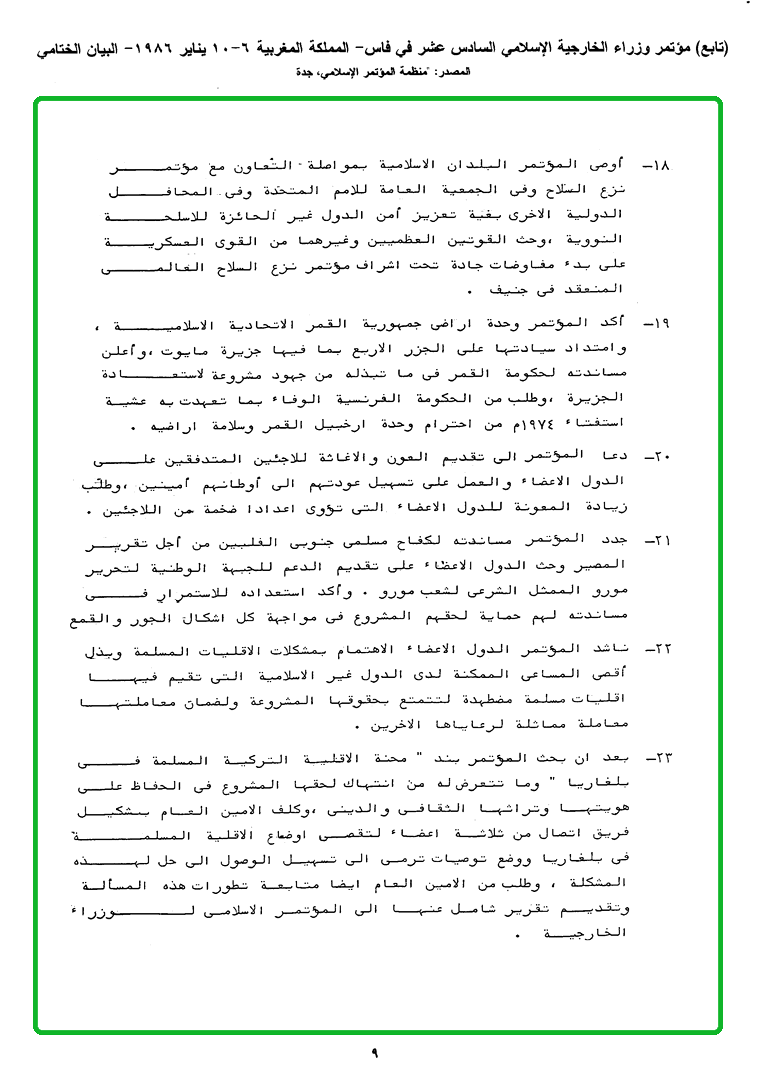 (تابع) مؤتمر وزراء الخارجية الإسلامي السادس عشر في فاس- المملكة المغربية ٦-١٠ يناير ١٩٨٦- البيان الختامي
المصدر: "منظمة المؤتمر الإسلامي، جدة
١٨- أوصى المؤتمر البلدان الاسلامية بمواصلة التعاون مع مؤتمر
نزع السلاح وفى الجمعية العامة للامم المتحدة وفى المحافل
الدولية الاخرى بغية تعزيز أمن الدول غير الحائزة للاسلحة
النووية ،وحث القوتين العظميين وغيرهما من القوى العسكرية
على بدء مفاوضات جادة تحت اشراف مؤتمر نزع السلاح العالمى
المنعقد فى جنيف .
١٩- أكد المؤتمر وحدة اراضى جمهورية القمر الاتحادية الاسلامية ،
وامتداد سيادتها على الجزر الاربع بما فيها جزيرة مايوت ،وأعلن
مساندته لحكومة القمر فى ما تبذله من جهود مشروعة لاستعادة
الجزيرة ،وطلب من الحكومة الفرنسية الوفاء بما تعهدت به عشية
استفتاء ١٩٧٤م من احترام وحدة ارخبيل القمر وسلامة اراضيه .
٢٠- دعا المؤتمر الى تقديم العون والاغاثة للاجئين المتدفقين على
الدول الاعضاء والعمل على تسهيل عودتهم الى أوطانهم أمينين ،وطلب
زيادة المعونة للدول الاعضاء التى تؤوى اعدادا ضخمة من اللاجئين .
٢١- جدد المؤتمر مساندته لكفاح مسلمى جنوبى الفلبين من أجل تقرير
المصير وحث الدول الاعضاء على تقديم الدعم للجبهة الوطنية لتحرير
مورو الممثل الشرعى لشعب مورو . وأكد استعداده للاستمرار فى
مساندته لهم حماية لحقهم المشروع فى مواجهة كل اشكال الجور والقمع
٢٢- ناشد المؤتمر الدول الاعضاء الاهتمام بمشكلات الاقليات المسلمة وبذل
أقصى المساعى الممكنة لدى الدول غير الاسلامية التى تقيم فيها
اقليات مسلمة مضطهدة لتتمتع بحقوقها المشروعة ولضمان معاملتها
معاملة مماثلة لرعاياها الاخرين .
٢٣- بعد ان بحث المؤتمر بند " محنة الاقلية التركية المسلمة فى
بلغاريا " وما تتعرض له من انتهاك لحقها المشروع فى الحفاظ على
هويتها وتراثها الثقافى والدينى ،وكلف الامين العام بتشكيل
فريق اتصال من ثلاثة اعضاء لتقصى اوضاع الاقلية المسلمة
فى بلغاريا ووضع توصيات ترمى الى تسهيل الوصول الى حل لهذه
المشكلة ، وطلب من الامين العام ايضا متابعة تطورات هذه المسألة
وتقديم تقرير شامل عنها الى المؤتمر الاسلامى لوزراء
الخارجية .
٩